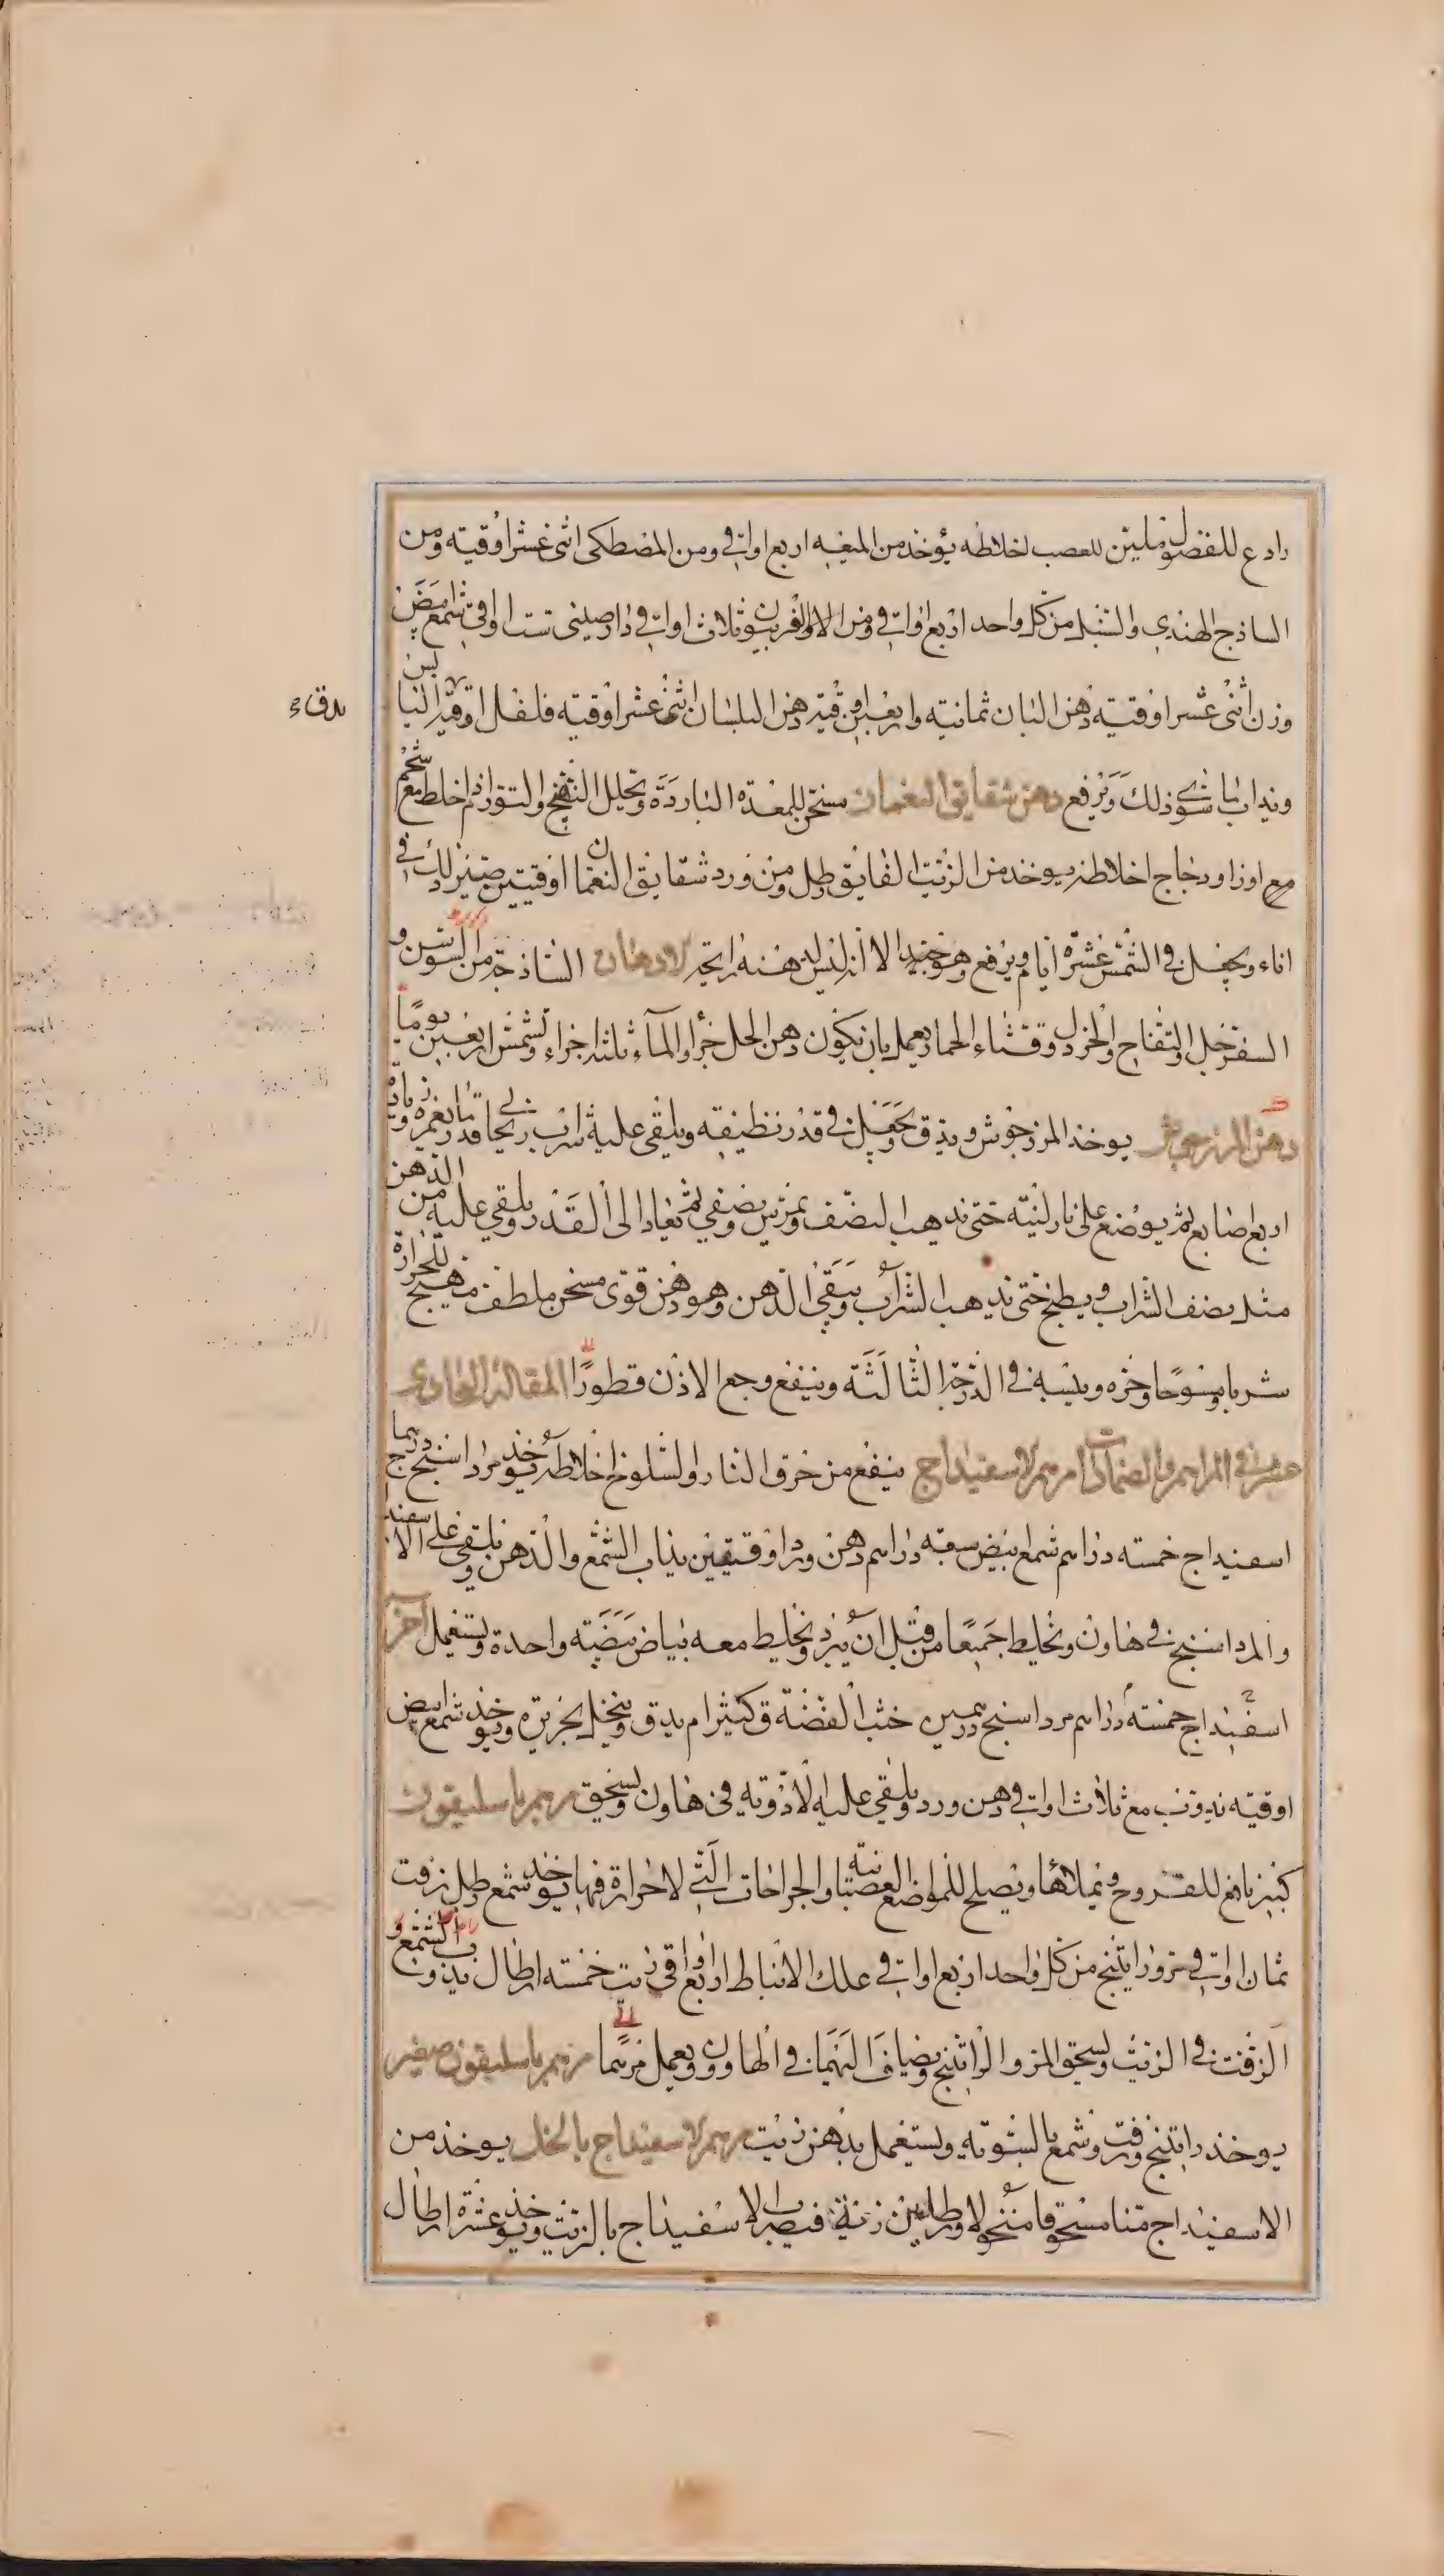 رادع للفضول ملين للعصب اخلاطه يؤخذ من الميعه اربع اواقي ومن المصطكى اثنى عشر اوقيه ومن
الساذج الهندي والسنبل من كل واحد اربع اواقي ومن الافربيون ثلاث اواقي دارصيني ست اواقي شمع ابيض
وزن اثنى عشر اوقيه دهن البان ثمانيه واربعين اوقيه دهن البلسان اثنى عشر اوقيه فلفل اوقيه اليابس
يدق ء
ويداب سوى ذلك ويرفع دهن شقايق النعمان مسخن للمعدة الباردة وتحليل النفخ والتور اذا خلط مع شحم
مع اوز او دجاج اخلاطه يوخذ من الزيت الفايق رطل ومن ورد شقايق النعمان اوقيتين صير ذلك في
اناء ويجعل في الشمس عشرة ايام ويرفع وهو جيد الا انه ليس له هذه رايحة الادهان الساذجة من السوسن و
السفرجل والتفاح والخردل وقثاء الحمار يعمل بان يكون دهن الحل جزأ والمآء ثلثة اجزاء ويشمس اربعين يوما
دهن المرزنجوش يوخذ المرزجوش ويدق ويجعل في قدر نظيفه ويلقى عليه شراب ريحاني قدر ما يغمره وزيادة
اربع اصابع ثم يوضع على نار لينه حتى يذهب النصف ويمرس ويصفي ثم يعاد الى القدر ويلقي عليه من الدهن
مثل نصف الشراب ويطبخ حتى يذهب الشراب ويبقى الدهن وهو دهن قوى مسخن ملطف مهيج للحرارة
شربا ومسوحا وحره ويبسه في الدرجة الثالثه وينفع وجع الاذن قطورا المقالة الحادى
عشر في المراهم والضمادات مرهم الاسفيداج ينفع من حرق النار والسلوخ اخلاطه يوخذ مرداسنج درهما
اسفيداج خمسه دراهم شمع ابيض سبعه دراهم دهن ورد اوقيتين يذاب الشمع والدهن ويلقي على الاسفيداج
والمرداسنج في هاون ويخلط جميعا من قبل ان يبرد ويخلط معه بياض بيضه واحدة ويستعمل آخر
اسفيداج خمسه دراهم مرداسنج درهمين خبث الفضة ق كثيرا م يدق وينخل بحريره ويوخذ شمع ابيض
اوقيه يذوب مع ثلاث اواقي دهن ورد ويلقي عليه الادويه في هاون ويسحق مرهم باسليقون
كبير نافع للقروح ويملاها ويصلح للمواضع العصبانيه والجراحات التي لا حرارة فيها يوخذ شمع رطل زفت
ثمان اواقي مر وراتينج من كل واحد اربع اواقي علك الانباط اربع اواقي زيت خمسه ارطال يذوب الشمع و
الزفت في الزيت ويسحق المر والراتينج ويضاف اليهما في الهاون ويعمل مرهما مرهم باسليقون صغير
يوخذ راتينج وزفت وشمع بالسويه ويستعمل بدهن زيت مرهم الاسفيداج بالخل يوخذ من
الاسفيداج منا مسحوقا منخولا ورطلين زيت فيضرب الاسفيداج بالزيت ويوخذ عشرة ارطال